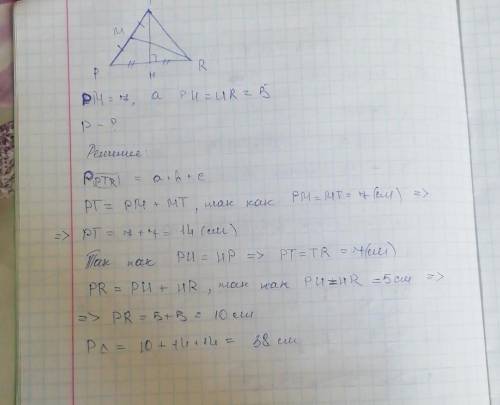 M
P
H
R
PM = 7, а PH = HR = 5
P - ?
Решение:
P PTR = a + b + c
PT = PM + MT, так как PM = MT = 7 (см) =>
=> PT = 7 + 7 = 14 (см)
Так как PH = HP => PT = TR = 7(см)
PR = PH + HR, так как PH = HR = 5 см =>
=> PR = 5 + 5 = 10 см
P△ = 10 + 14 + 14 = 38 см